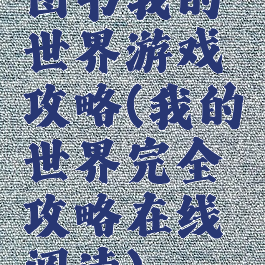 图书我的
世界游戏
攻略(我的
世界完全
攻略在线
阅读)